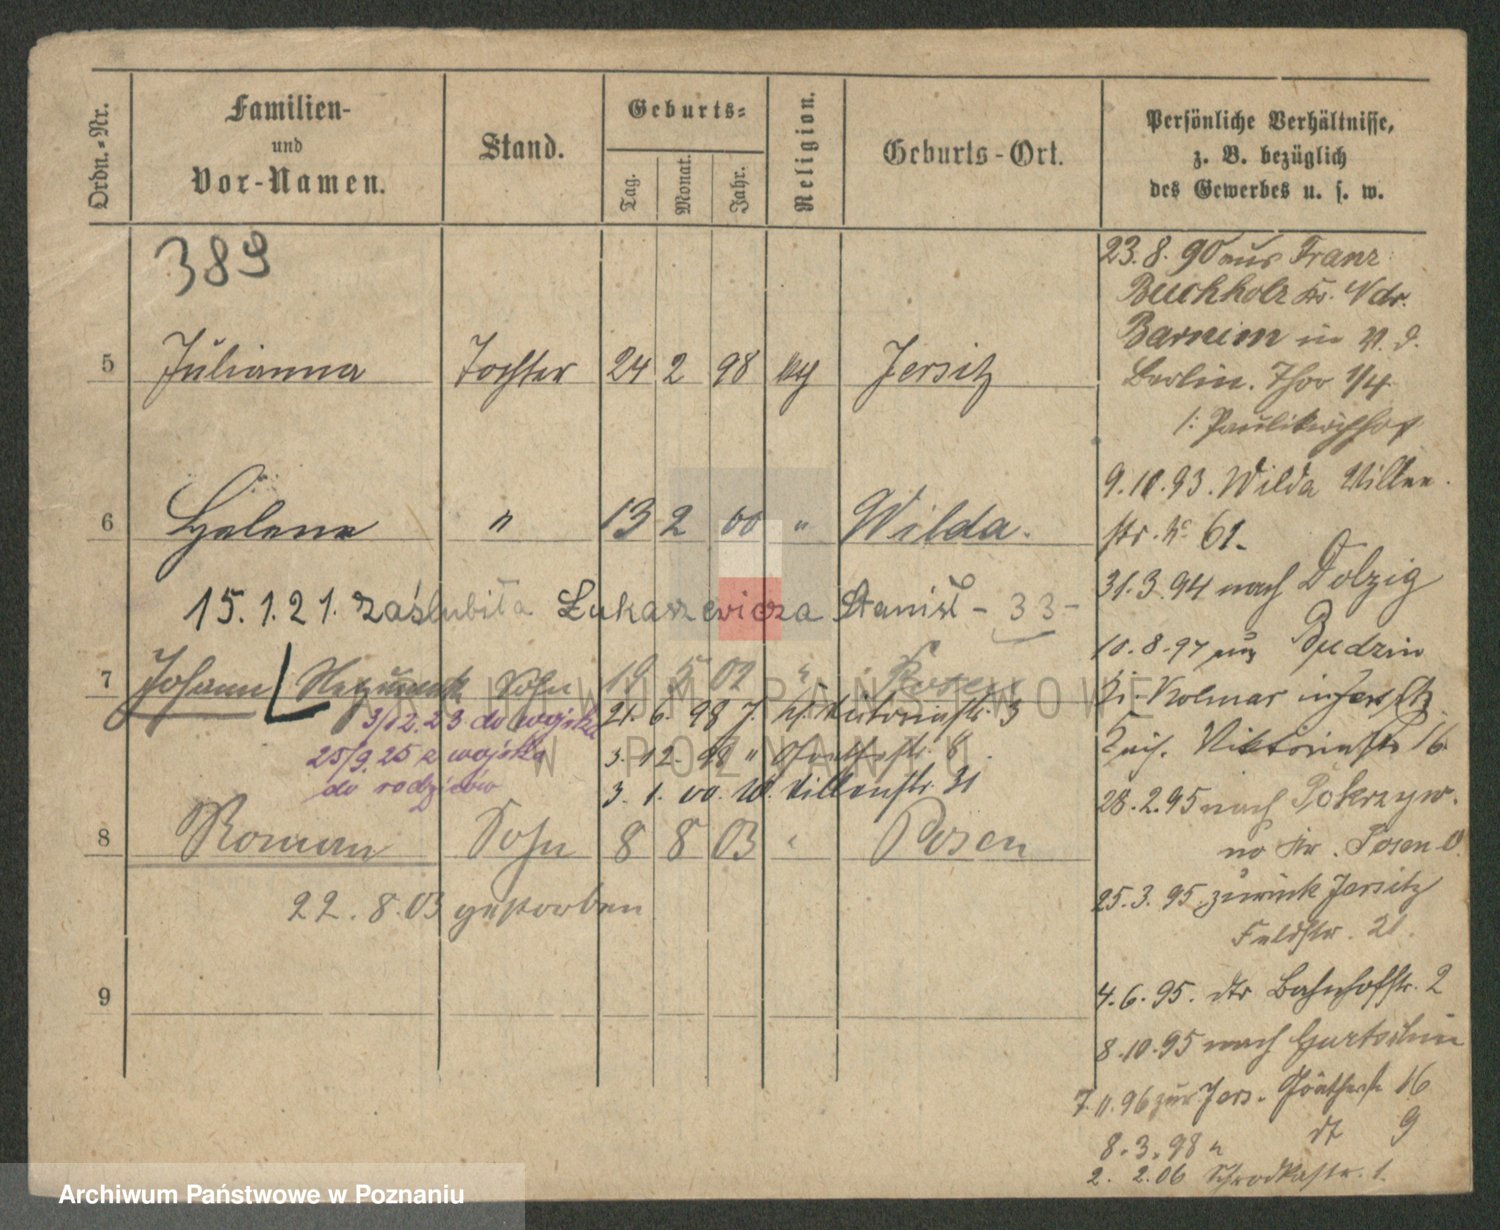 Ordn.-Nr.
Familien-
und
Vor-Namen.
Stand.
Geburts-
Tag.
Monat.
Jahr.
Religion.
Geburts-Ort.
Persönliche Verhältnisse,
z. B. bezüglich
des Gewerbes u. s. w.
389
5 Julianna Tochter 24 2 98 Jersitz
6 Helene " 13 2 00 " Wilda.
15.1.21. zaślubiła Łukaszewicza Stanisł - 33 -
7 Johann Sohn 19 5 02 " Posen
3/12.23 do wojska
25/9.25 z wojska
do rodziców
21. 6. 98 J. Viktoriastr. 3
3. 12. 98 " Goethestr. 8
3. 1. 00. W. Villenstr. 31
8 Roman Sohn 8 8 03 " Posen
22. 8. 03 gestorben
9
23. 8. 90 aus Franz
Buchholz Kr. Ndr.
Barnim in
Berlin. Thor 1/4
1: Paulikirchhof
9.10.93. Wilda Villen
str. No 61.
31.3.94 nach Dolzig
10.8.94 aus Budzin
Kr. Kolmar in Jersitz
Viktoriastr 16
28.2.95 nach Pokrzyw.
no Kr. Posen O.
25.3.95 zurück Jersitz
Feldstr. 21.
4.6.95. dto Bahnhofstr. 2
8.10.95 nach Gurtschin
7. 96 zur Jers. Göthestr 16
8.3.98 " dt 9
2. 2.06 Schrodkastr. 1.
ARCHIWUM PAŃSTWOWE
W POZNANIU
Archiwum Państwowe w Poznaniu